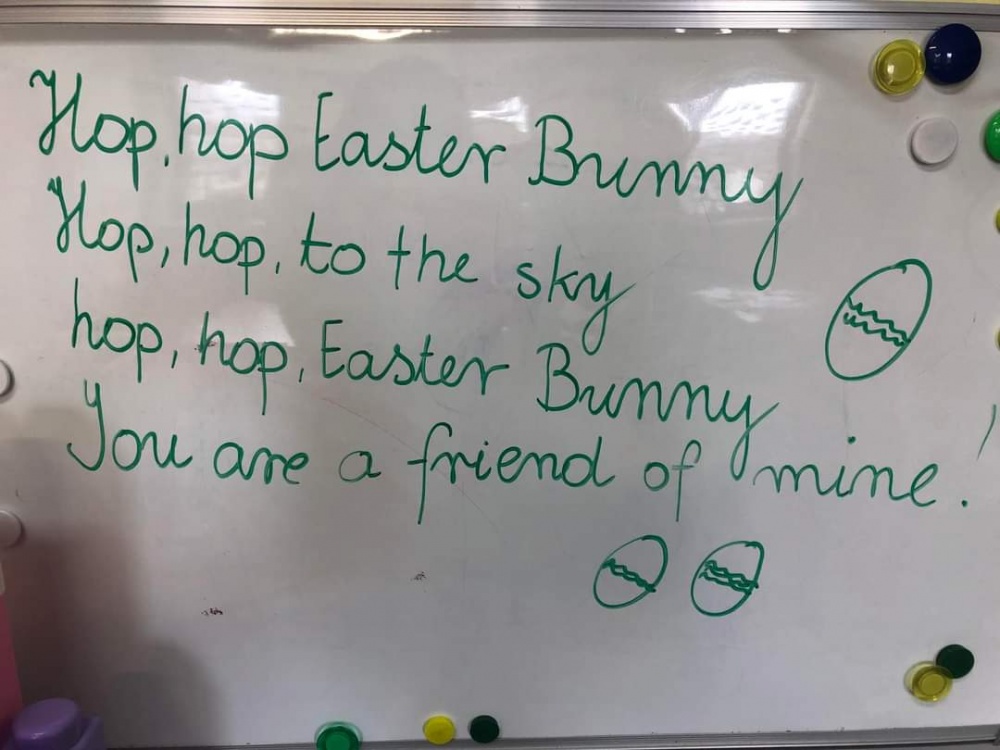 Hop, hop Easter Bunny
Hop, hop, to the sky
hop, hop, Easter Bunny
You are a friend of mine!